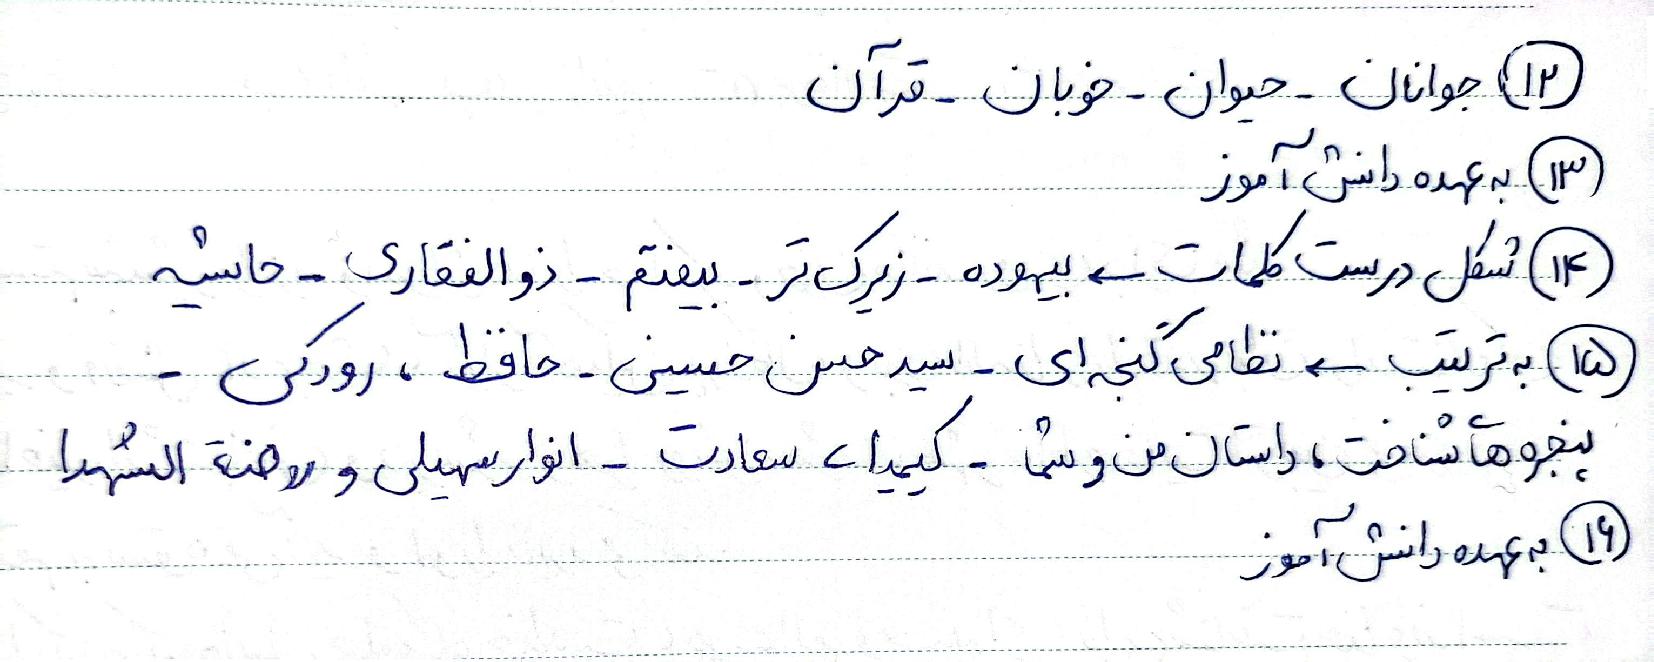 ۱۲) جوانان - حیوان - خوبان - قرآن
۱۳) به عهده دانش آموز
۱۴) شکل درست کلمات ← بیهوده - زیرک تر - بیفتم - ذوالفقاری - حاشیه
۱۵) به ترتیب ← نظامی گنجه ای - سید حسن حسینی - حافظ ، رودکی -
پنجره های شناخت ، داستان من و شما - کیمیای سعادت - انوار سهیلی و روضة الشهدا
۱۶) به عهده دانش آموز